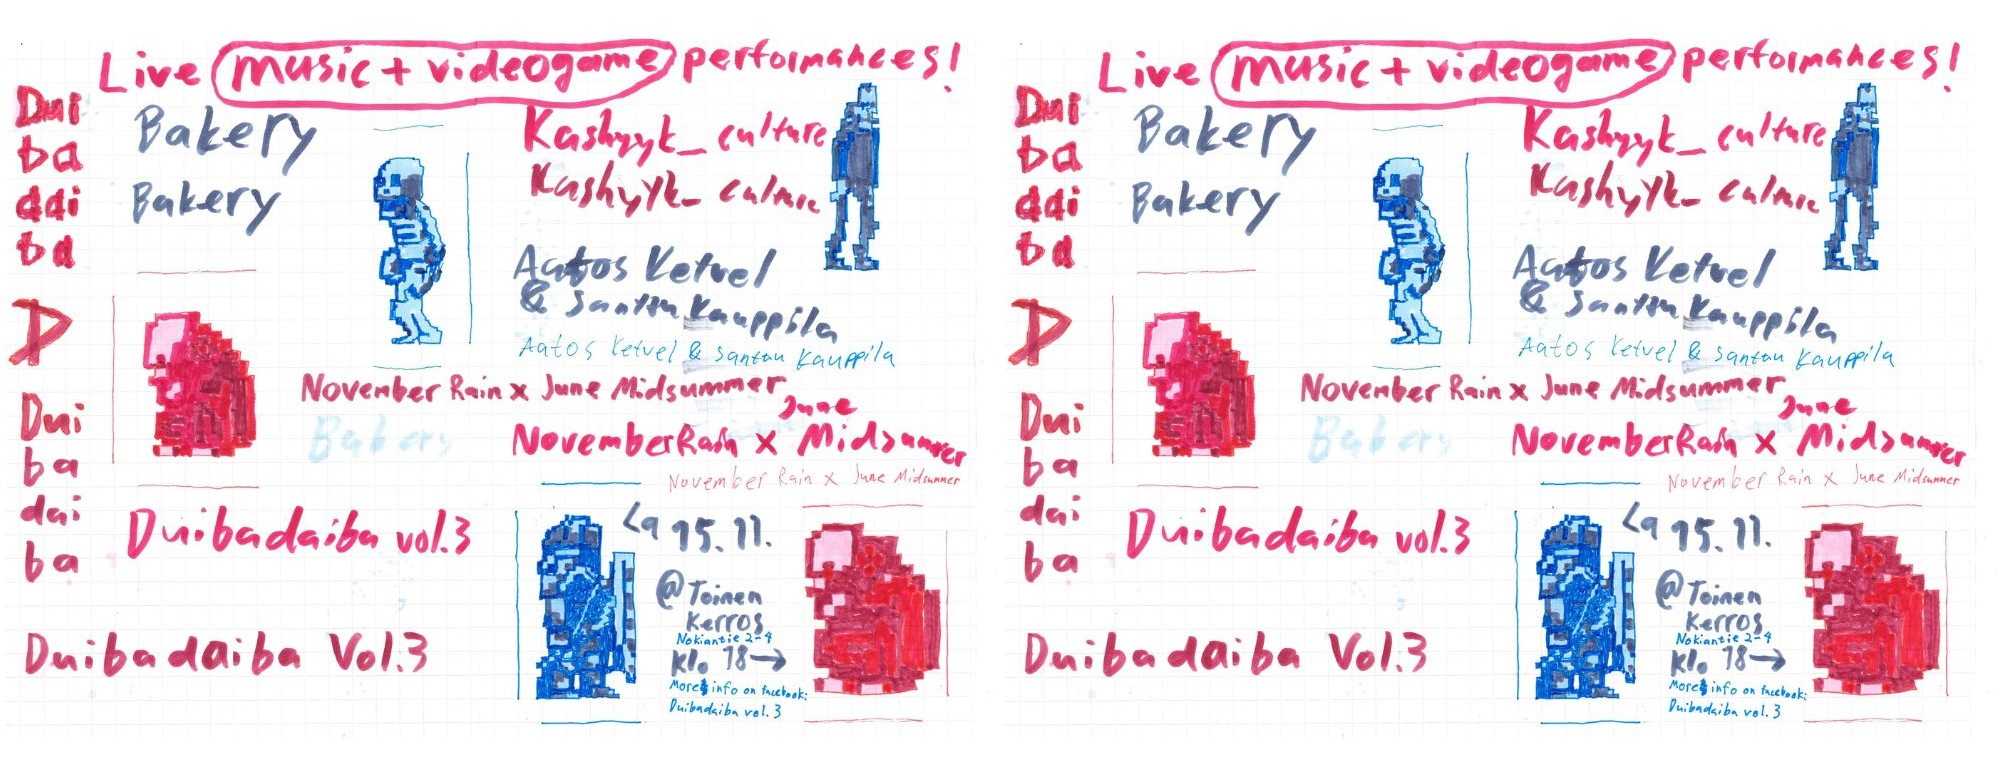 Live music + videogame performances!
Dui
ba
dai
ba
D
Dui
ba
dai
ba
Bakery
Bakery
Kashyyk_culture
Kashyyk_culture
Aatos Ketvel
& Santtu Kauppila
Aatos Ketvel & Santtu Kauppila
November Rain x June Midsummer
Bakery
June
November Rain x Midsummer
November Rain x June Midsummer
Duibadaiba vol.3
Duibadaiba Vol.3
La 15.11.
@Toinen
Kerros
Nokiantie 2-4
Klo 18→
More info on facebook:
Duibadaiba vol.3
Live music + videogame performances!
Dui
ba
dai
ba
D
Dui
ba
dai
ba
Bakery
Bakery
Kashyyk_culture
Kashyyk_culture
Aatos Ketvel
& Santtu Kauppila
Aatos Ketvel & Santtu Kauppila
November Rain x June Midsummer
Bakery
June
November Rain x Midsummer
November Rain x June Midsummer
Duibadaiba vol.3
Duibadaiba Vol.3
La 15.11.
@Toinen
Kerros
Nokiantie 2-4
Klo 18→
More info on facebook:
Duibadaiba vol.3